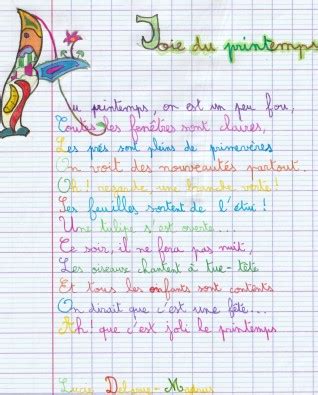 Joie du printemps
Au printemps, on est un peu fou,
Toutes les fenêtres sont claires,
Les prés sont pleins de primevères
On voit des nouveautés partout.
Oh! regarde, une branche verte!
Ses feuilles sortent de l'étui!
Une tulipe s'est ouverte...
Ce soir, il ne fera pas nuit,
Les oiseaux chantent à tue-tête
Et tous les enfants sont contents
On dirait que c'est une fête...
Ah! que c'est joli le printemps
Lucie Delarue-Mardrus